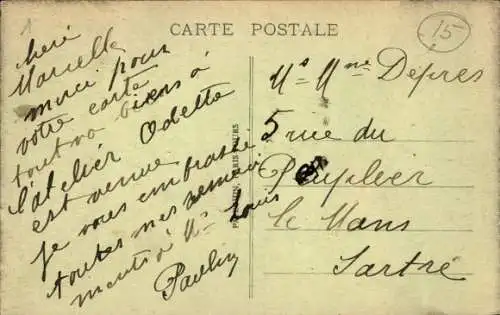 CARTE POSTALE
15
chere
Marcelle
merci pour
votre carte
tout va biens à
l'atelier Odette
est venue
je vous embrasse
toutes mes remerci
ments à Mr Louis
Paulin
Mr Mme Depres
5 rue du
Peuplier
le Mans
Sartre